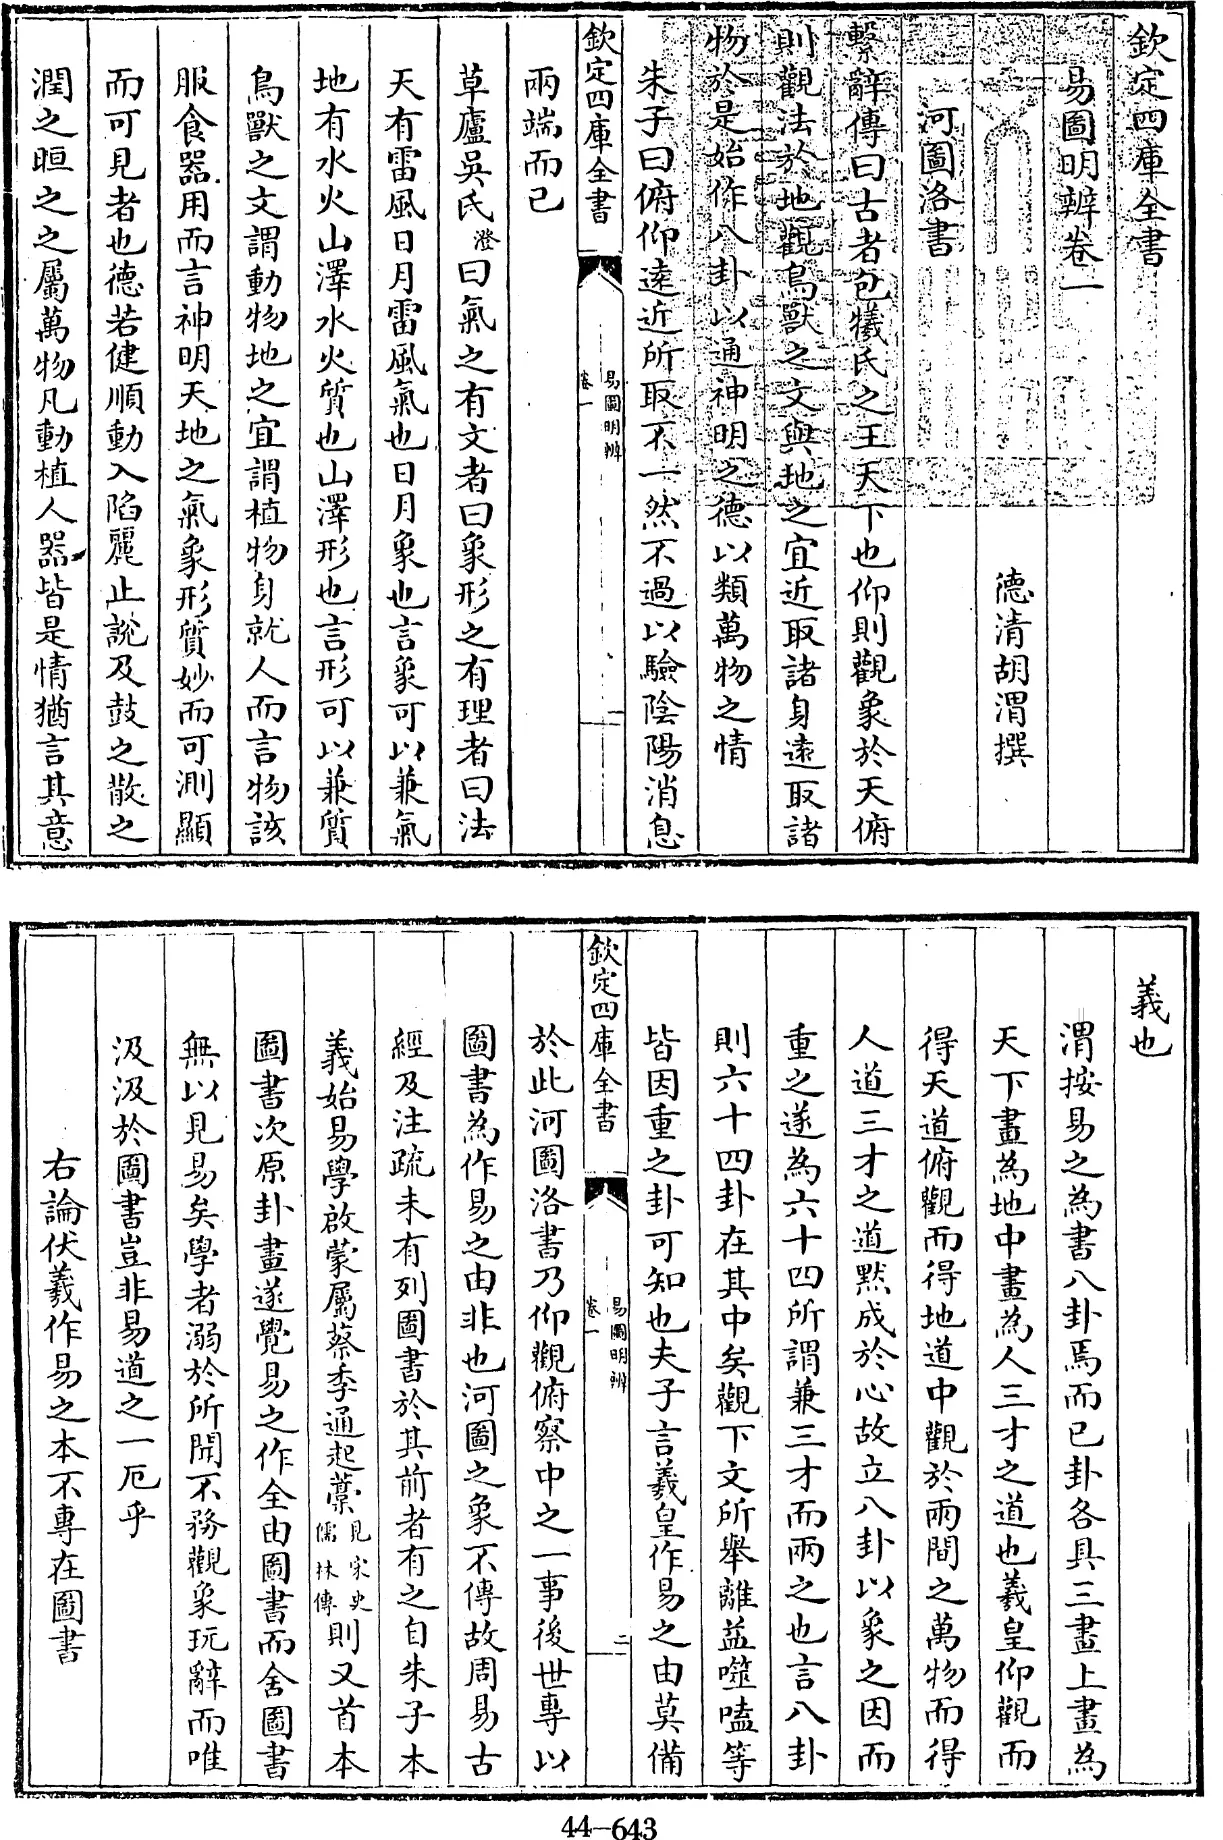 欽定四庫全書
易圖明辨卷一
德清胡渭撰
河圖洛書
繫辭傳曰古者包犧氏之王天下也仰則觀象於天俯
則觀法於地觀鳥獸之文與地之宜近取諸身遠取諸
物於是始作八卦以通神明之德以類萬物之情
朱子曰俯仰遠近所取不一然不過以驗陰陽消息
欽定四庫全書
易圖明辨
卷一
一
兩端而已
草廬吳氏澄曰氣之有文者曰象形之有理者曰法
天有雷風日月雷風氣也日月象也言象可以兼氣
地有水火山澤水火質也山澤形也言形可以兼質
鳥獸之文謂動物地之宜謂植物身就人而言物該
服食器用而言神明天地之氣象形質妙而可測顯
而可見者也德若健順動入陷麗止說及鼓之散之
潤之晅之之屬萬物凡動植人器皆是情猶言其意
義也
渭按易之為書八卦焉而已卦各具三畫上畫為
天下畫為地中畫為人三才之道也羲皇仰觀而
得天道俯觀而得地道中觀於兩間之萬物而得
人道三才之道默成於心故立八卦以象之因而
重之遂為六十四所謂兼三才而兩之也言八卦
則六十四卦在其中矣觀下文所舉離益噬嗑等
皆因重之卦可知也夫子言羲皇作易之由莫備
欽定四庫全書
易圖明辨
卷一
二
於此河圖洛書乃仰觀俯察中之一事後世專以
圖書為作易之由非也河圖之象不傳故周易古
經及注疏未有列圖書於其前者有之自朱子本
義始易學啟蒙屬蔡季通起藁見宋史儒林傳則又首本
圖書次原卦畫遂覺易之作全由圖書而舍圖書
無以見易矣學者溺於所聞不務觀象玩辭而唯
汲汲於圖書豈非易道之一厄乎
右論伏羲作易之本不專在圖書
44-643